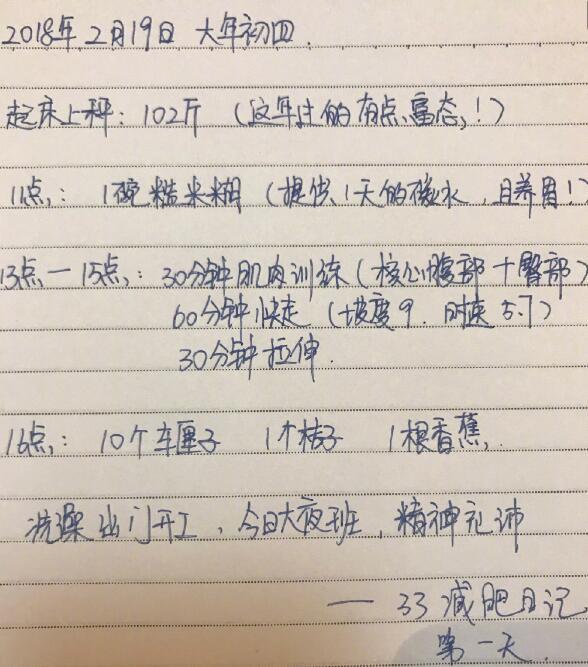 2018年2月19日 大年初四.
起床上秤: 102斤 (这年过的有点富态!)
11点: 1碗糙米糊 (提供1天的碳水, 且养胃!)
13点—15点: 30分钟肌肉训练 (核心腹部+臀部)
60分钟快走 (坡度9. 时速5.7)
30分钟拉伸.
16点: 10个车厘子 1个桔子 1根香蕉.
洗澡出门开工, 今日大夜班, 精神礼沛
—33减肥日记
第一天.